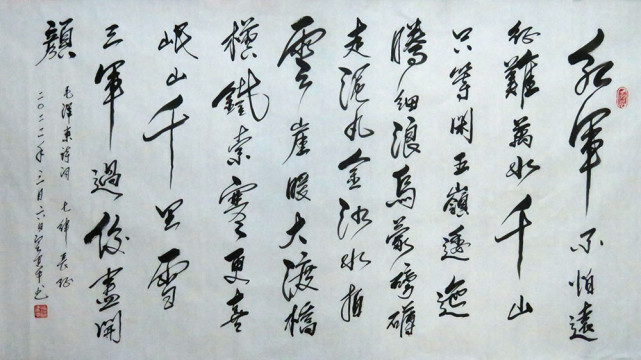 紅軍不怕遠
征難萬水千山
只等閑五嶺逶迤
騰細浪烏蒙磅礴
走泥丸金沙水拍
雲崖暖大渡橋
橫鐵索寒更喜
岷山千里雪
三軍過後盡開
顏
毛澤東詩詞 七律 長征
二〇二二年三月六日